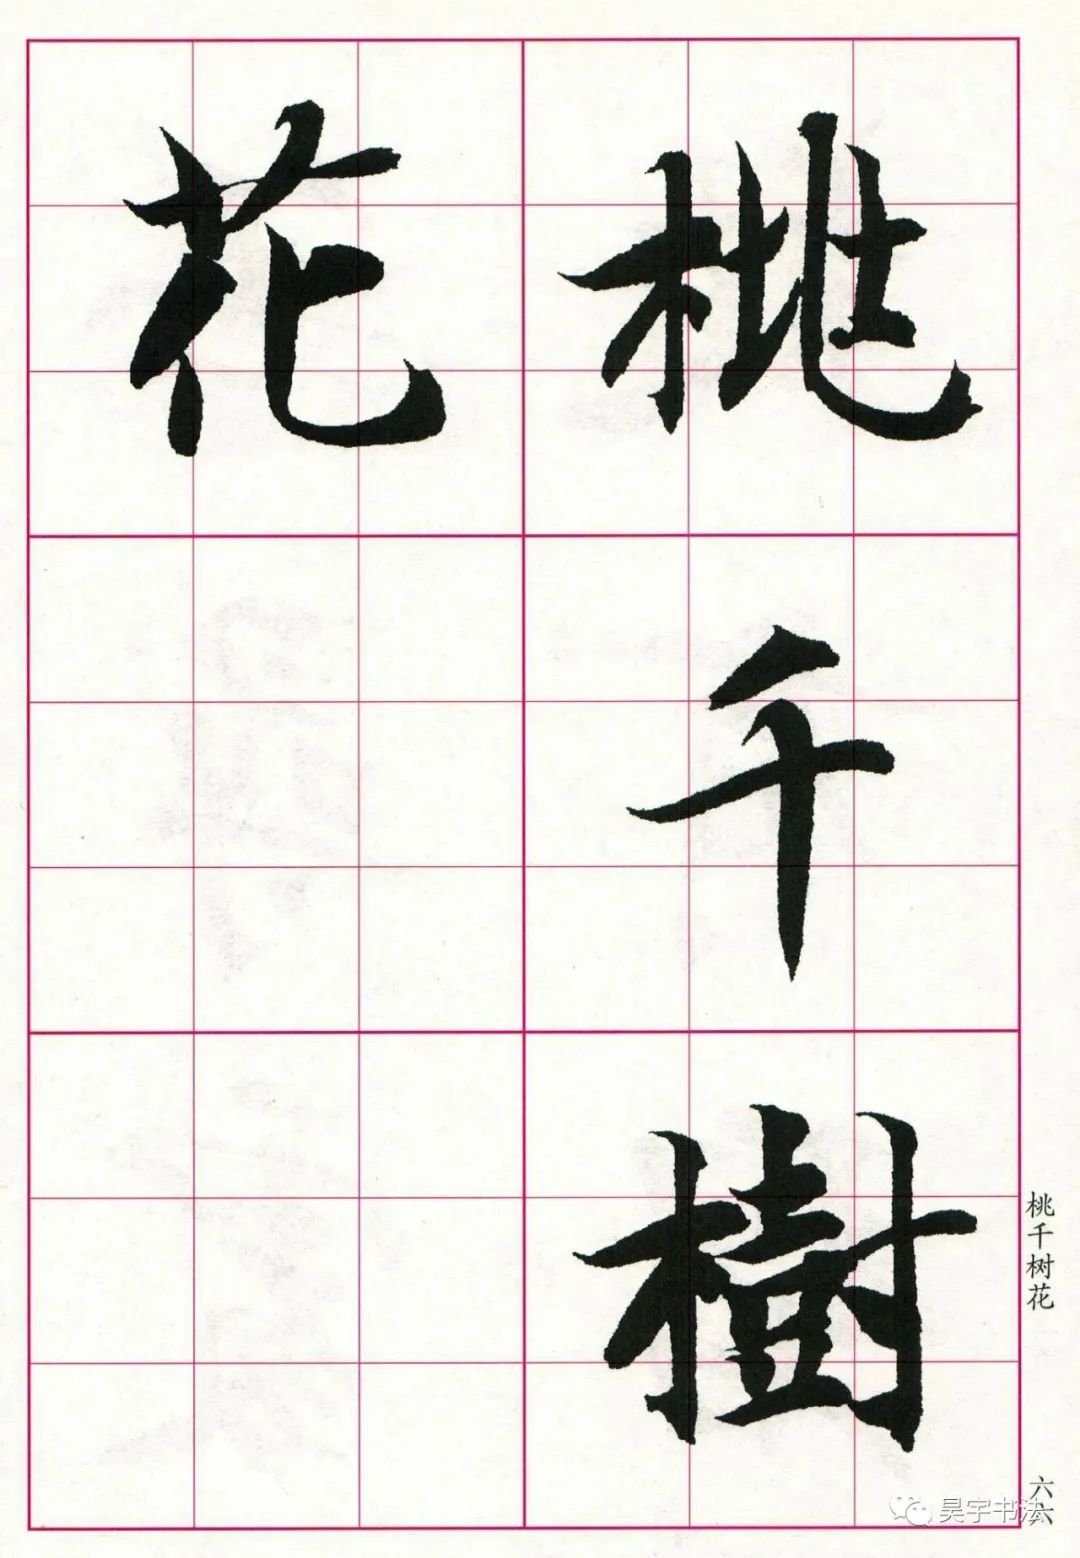 桃千樹
花
桃千树花
六六
昊宇书法